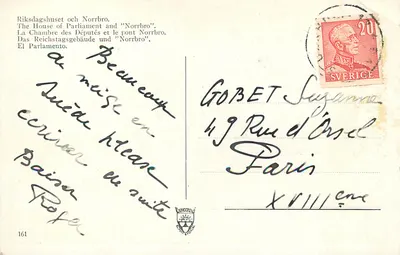 Riksdagshuset och Norrbro.
The House of Parliament and "Norrbro".
La Chambre des Députés et le pont Norrbro.
Das Reichstagsgebäude und "Norrbro".
El Parlamento.
Beaucoup
de neige en
Suède please
écrivez de suite
Baiser
Roger
20
SVERIGE
GOBET Suzanne
49 Rue d'Orsel
Paris
XVIIIème
161